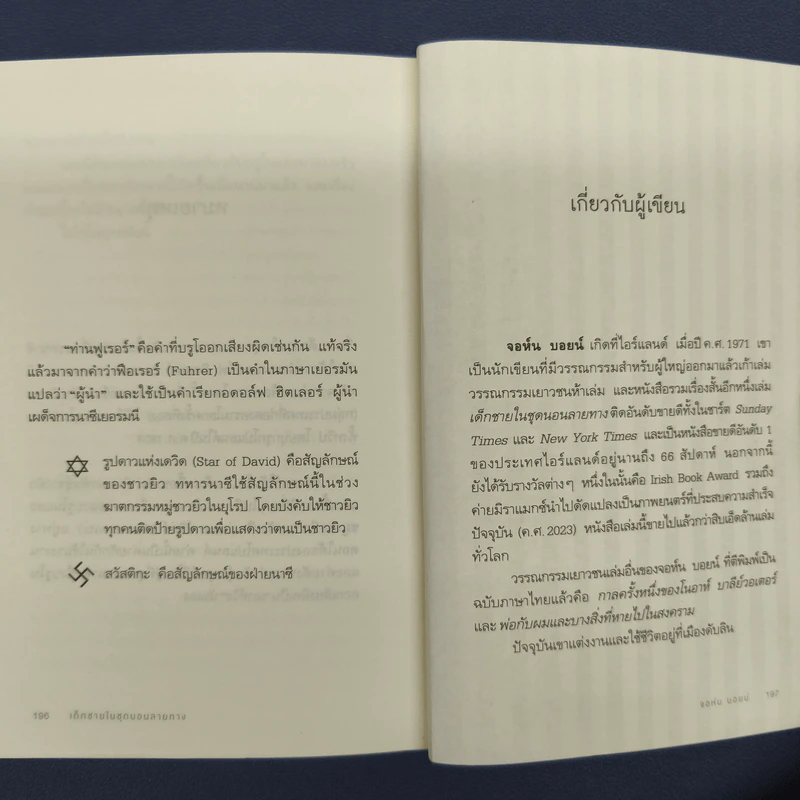 “ท่านฟูเรอร์” คือคำที่บรูโนออกเสียงผิดเช่นกัน แท้จริง
แล้วมาจากคำว่าฟือเรอร์ (Fuhrer) เป็นคำในภาษาเยอรมัน
แปลว่า “ผู้นำ” และใช้เป็นคำเรียกอดอล์ฟ ฮิตเลอร์ ผู้นำ
เผด็จการนาซีเยอรมนี
รูปดาวแห่งเดวิด (Star of David) คือสัญลักษณ์
ของชาวยิว ทหารนาซีใช้สัญลักษณ์นี้ในช่วง
ฆาตกรรมหมู่ชาวยิวในยุโรป โดยบังคับให้ชาวยิว
ทุกคนติดป้ายรูปดาวเพื่อแสดงว่าตนเป็นชาวยิว
สวัสติกะ คือสัญลักษณ์ของฝ่ายนาซี
196 เด็กชายในชุดนอนลายทาง
เกี่ยวกับผู้เขียน
จอห์น บอยน์ เกิดที่ไอร์แลนด์ เมื่อปี ค.ศ. 1971 เขา
เป็นนักเขียนที่มีวรรณกรรมสำหรับผู้ใหญ่ออกมาแล้วเก้าเล่ม
วรรณกรรมเยาวชนห้าเล่ม และหนังสือรวมเรื่องสั้นอีกหนึ่งเล่ม
เด็กชายในชุดนอนลายทาง ติดอันดับขายดีทั้งในชาร์ต Sunday
Times และ New York Times และเป็นหนังสือขายดีอันดับ 1
ของประเทศไอร์แลนด์อยู่นานถึง 66 สัปดาห์ นอกจากนี้
ยังได้รับรางวัลต่างๆ หนึ่งในนั้นคือ Irish Book Award รวมถึง
ค่ายมิราแมกซ์นำไปดัดแปลงเป็นภาพยนตร์ที่ประสบความสำเร็จ
ปัจจุบัน (ค.ศ. 2023) หนังสือเล่มนี้ขายไปแล้วกว่าสิบเอ็ดล้านเล่ม
ทั่วโลก
วรรณกรรมเยาวชนเล่มอื่นของจอห์น บอยน์ ที่ตีพิมพ์เป็น
ฉบับภาษาไทยแล้วคือ กาลครั้งหนึ่งของโนอาห์ บาลีย์วอเตอร์
และ พ่อกับผมและบางสิ่งที่หายไปในสงคราม
ปัจจุบันเขาแต่งงานและใช้ชีวิตอยู่ที่เมืองดับลิน
จอห์น บอยน์ 197